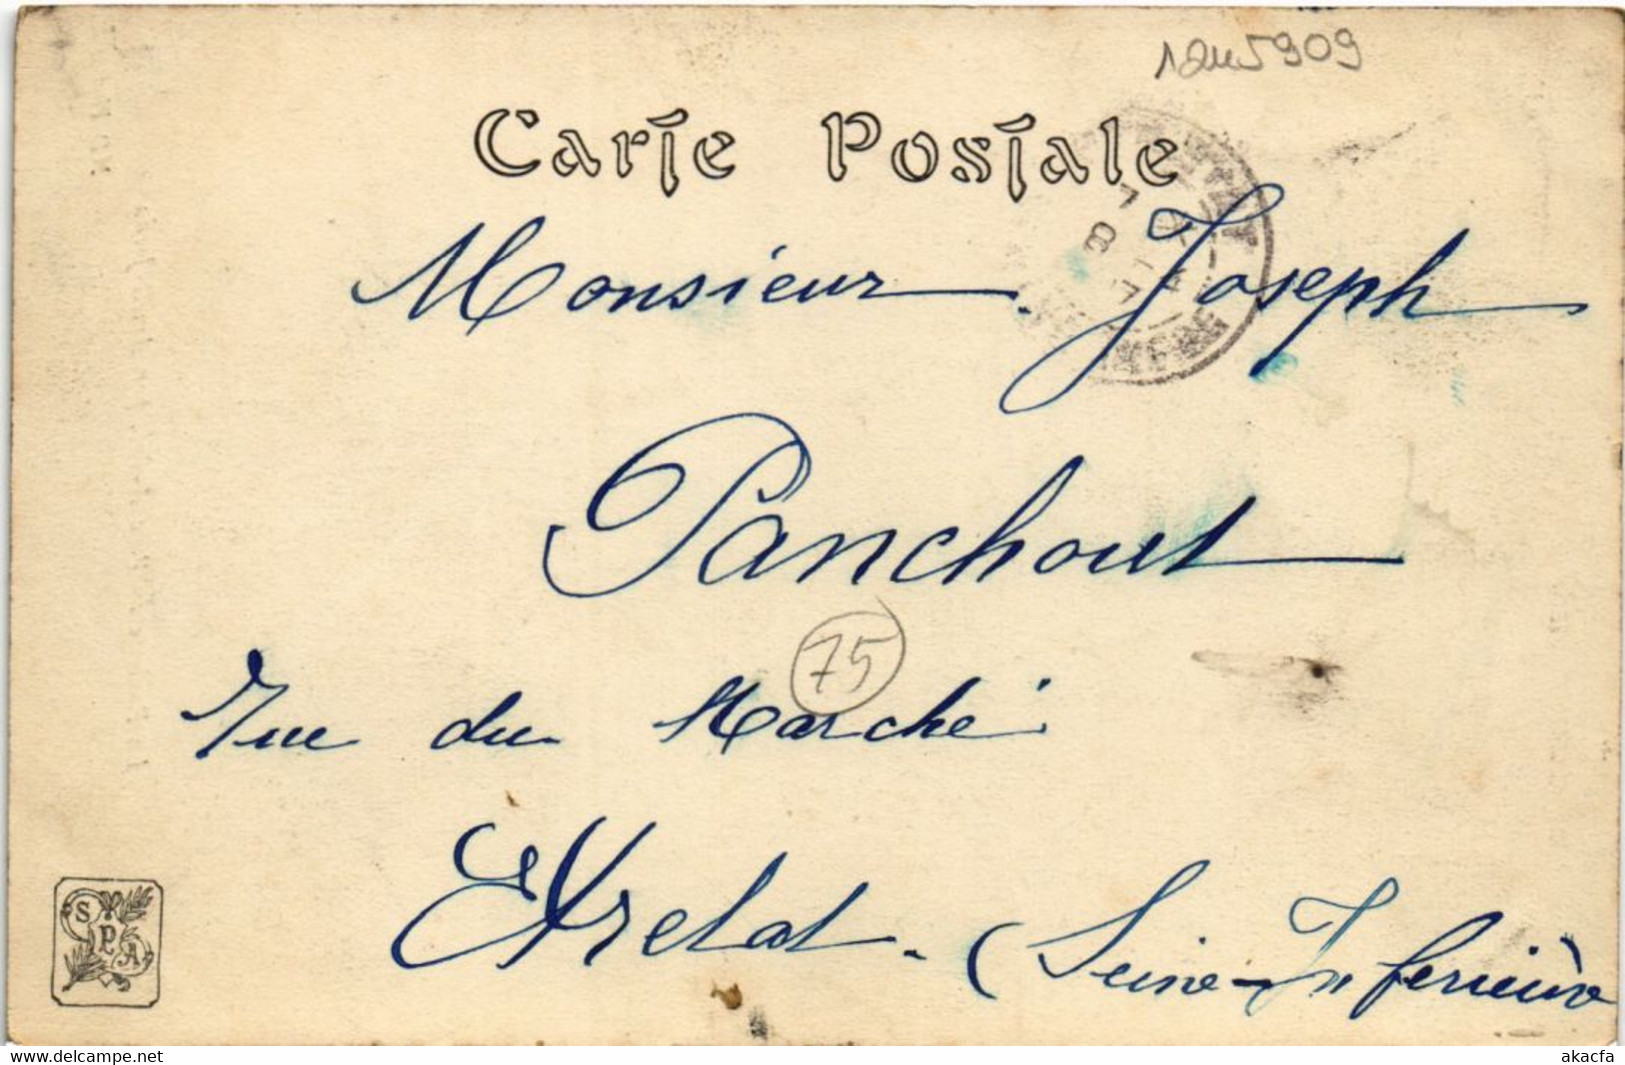 12m5909
Carte Postale
Monsieur Joseph
Panchout
75
rue du Marché
Etretat. (Seine-Inférieure
S P A
delcampe.net
akacfa